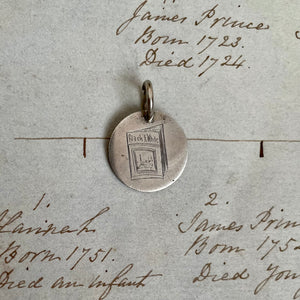 James Prince
Born 1723.
Died 1724.
1.
Hannah
Born 1751.
Died an infant
2.
James Prin
Born 175
Died You